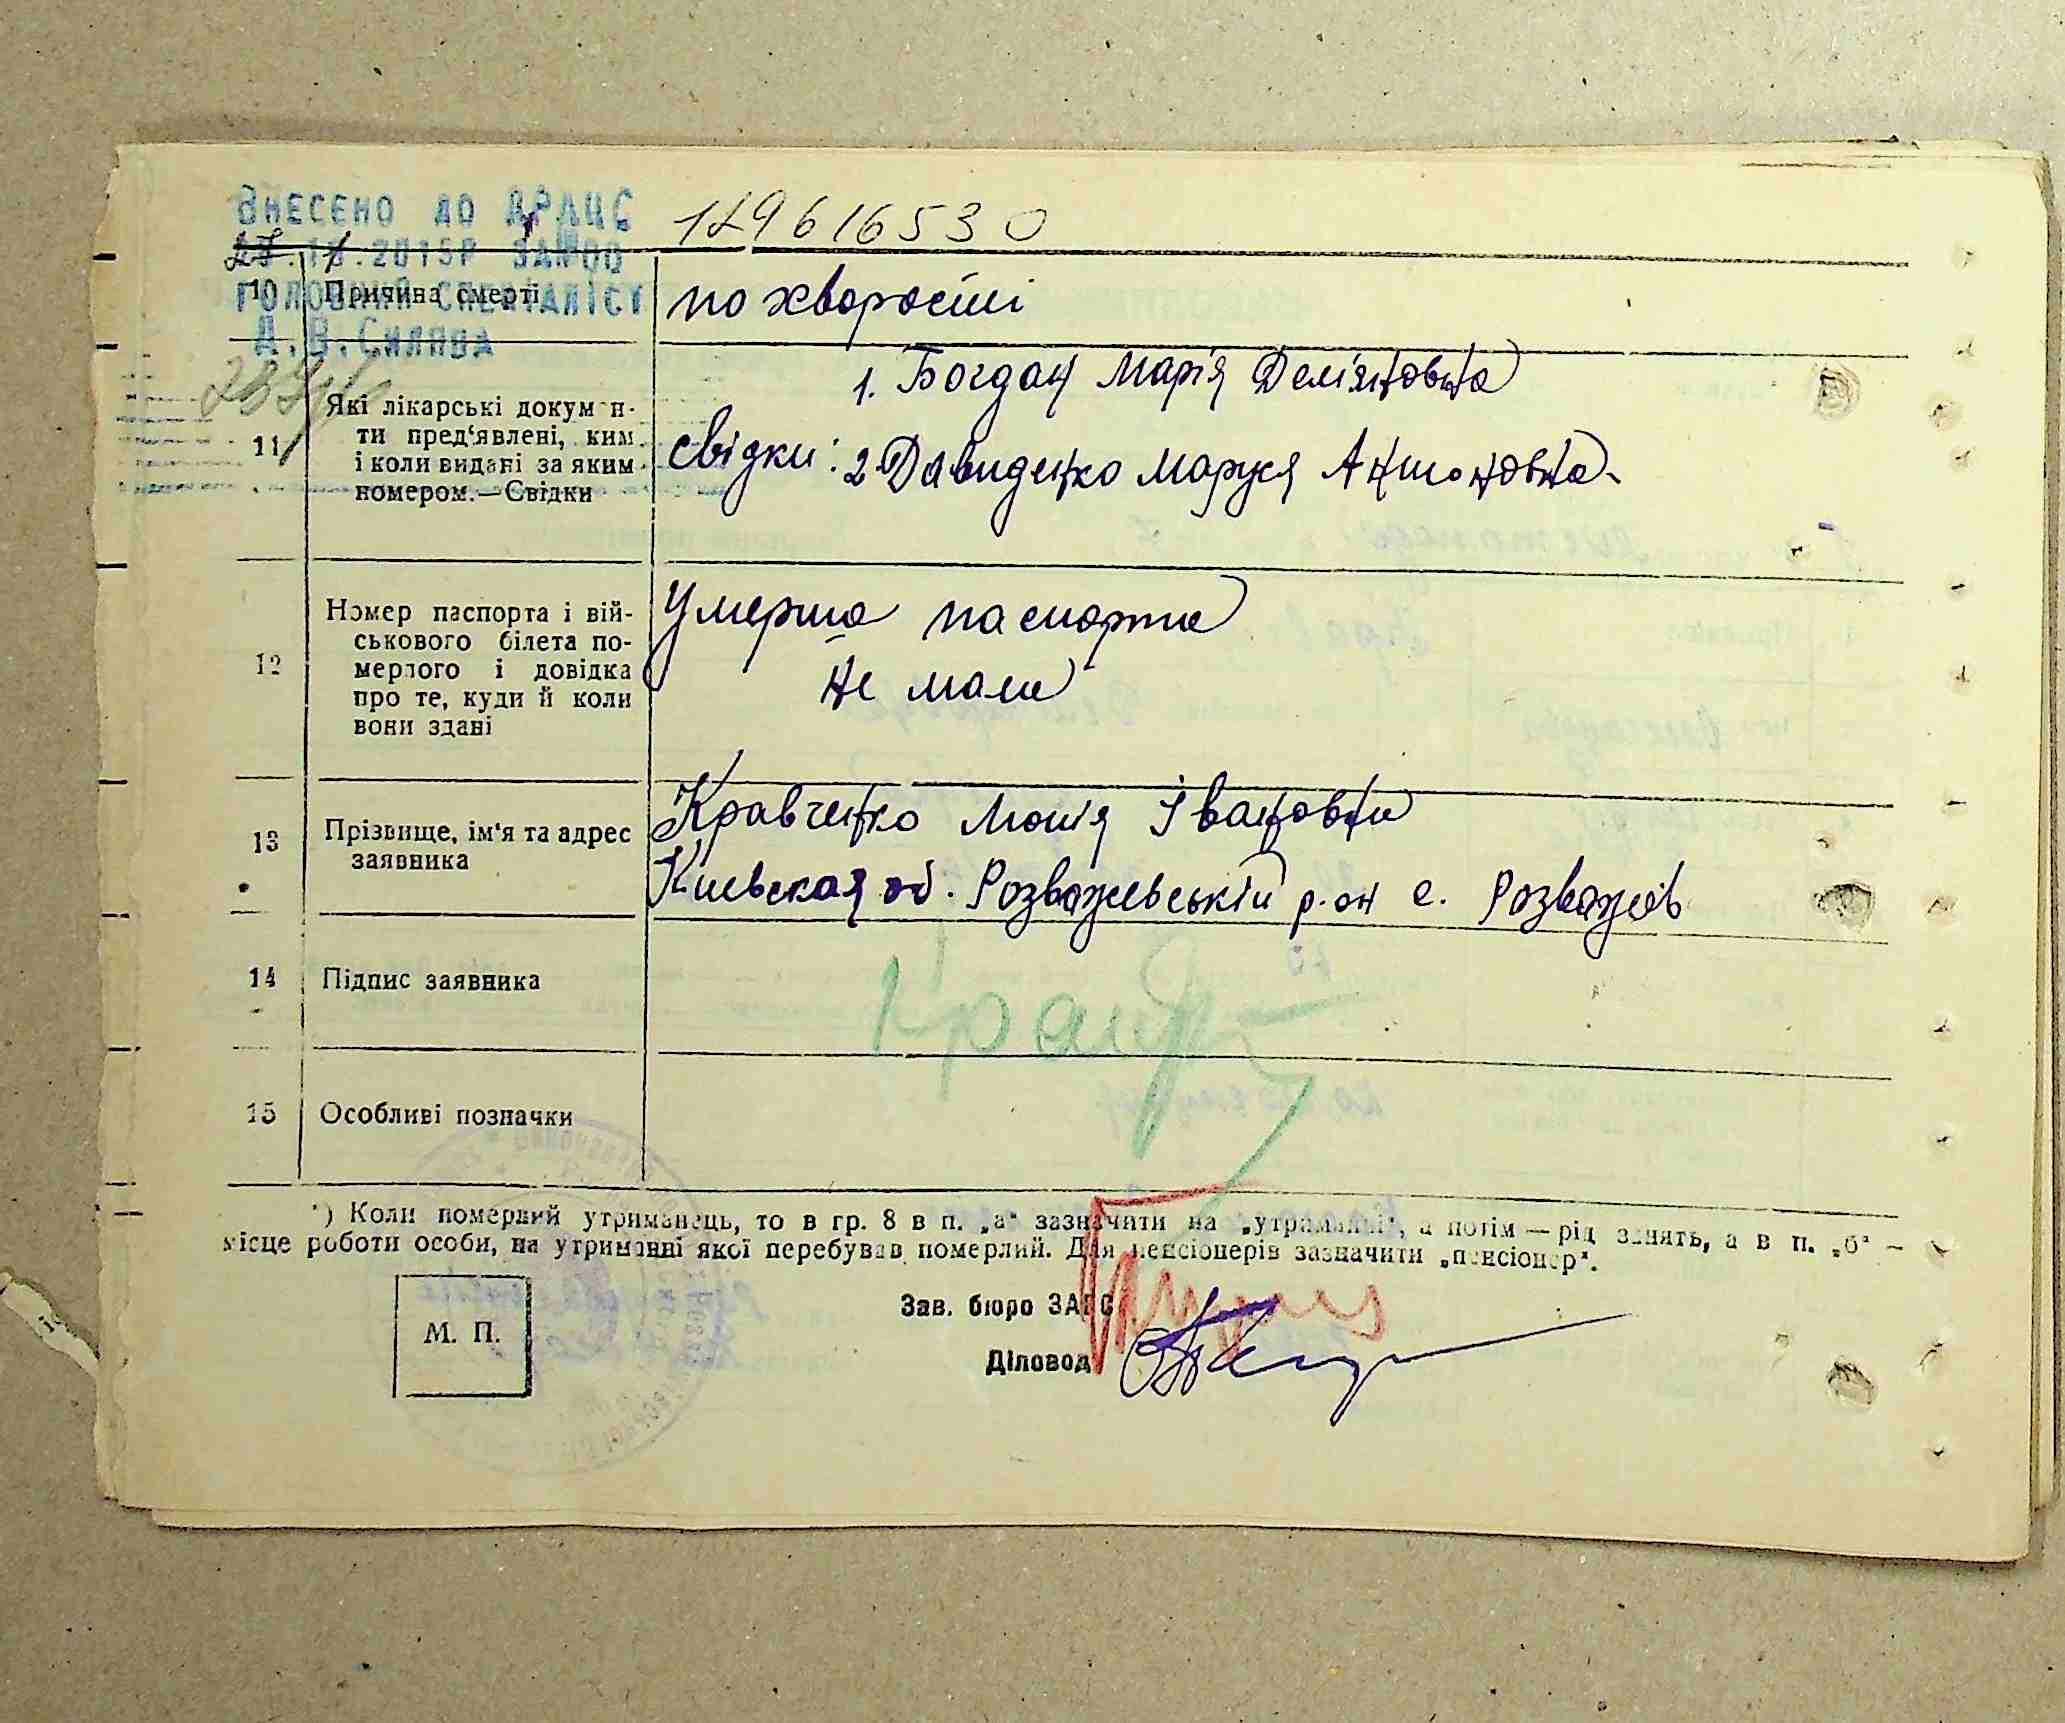 ВНЕСЕНО ДО ДРАЦС 129616530
2015Р ЗА №00
ГОЛОВНИЙ СПЕЦІАЛІСТ
10 Причина смерті по хворости
11 Які лікарські докум н-
ти пред'явлені, ким
і коли видані за яким
номером.—Свідки
1. Богдан Марія Делі'яновна
свідки: 2 Давиденко Маруся Антоновна
12 Номер паспорта і вій-
ськового білета по-
мерлого і довідка
про те, куди й коли
вони здані
Умерша паспорта
не мала
13 Прізвище, ім'я та адрес
заявника
Кравченко Івановни
Киевская об. Розважевській р-он с. Розважев
14 Підпис заявника
15 Особливі позначки
*) Коли померлий утриманець, то в гр. 8 в п. „а" зазначити на „утриманні", а потім — рід занять, а в п. „б" —
місце роботи особи, на утриманні якої перебував померлий. Для пенсіонерів зазначити „пенсіонер".
М. П.
Зав. бюро ЗАГС
Діловод